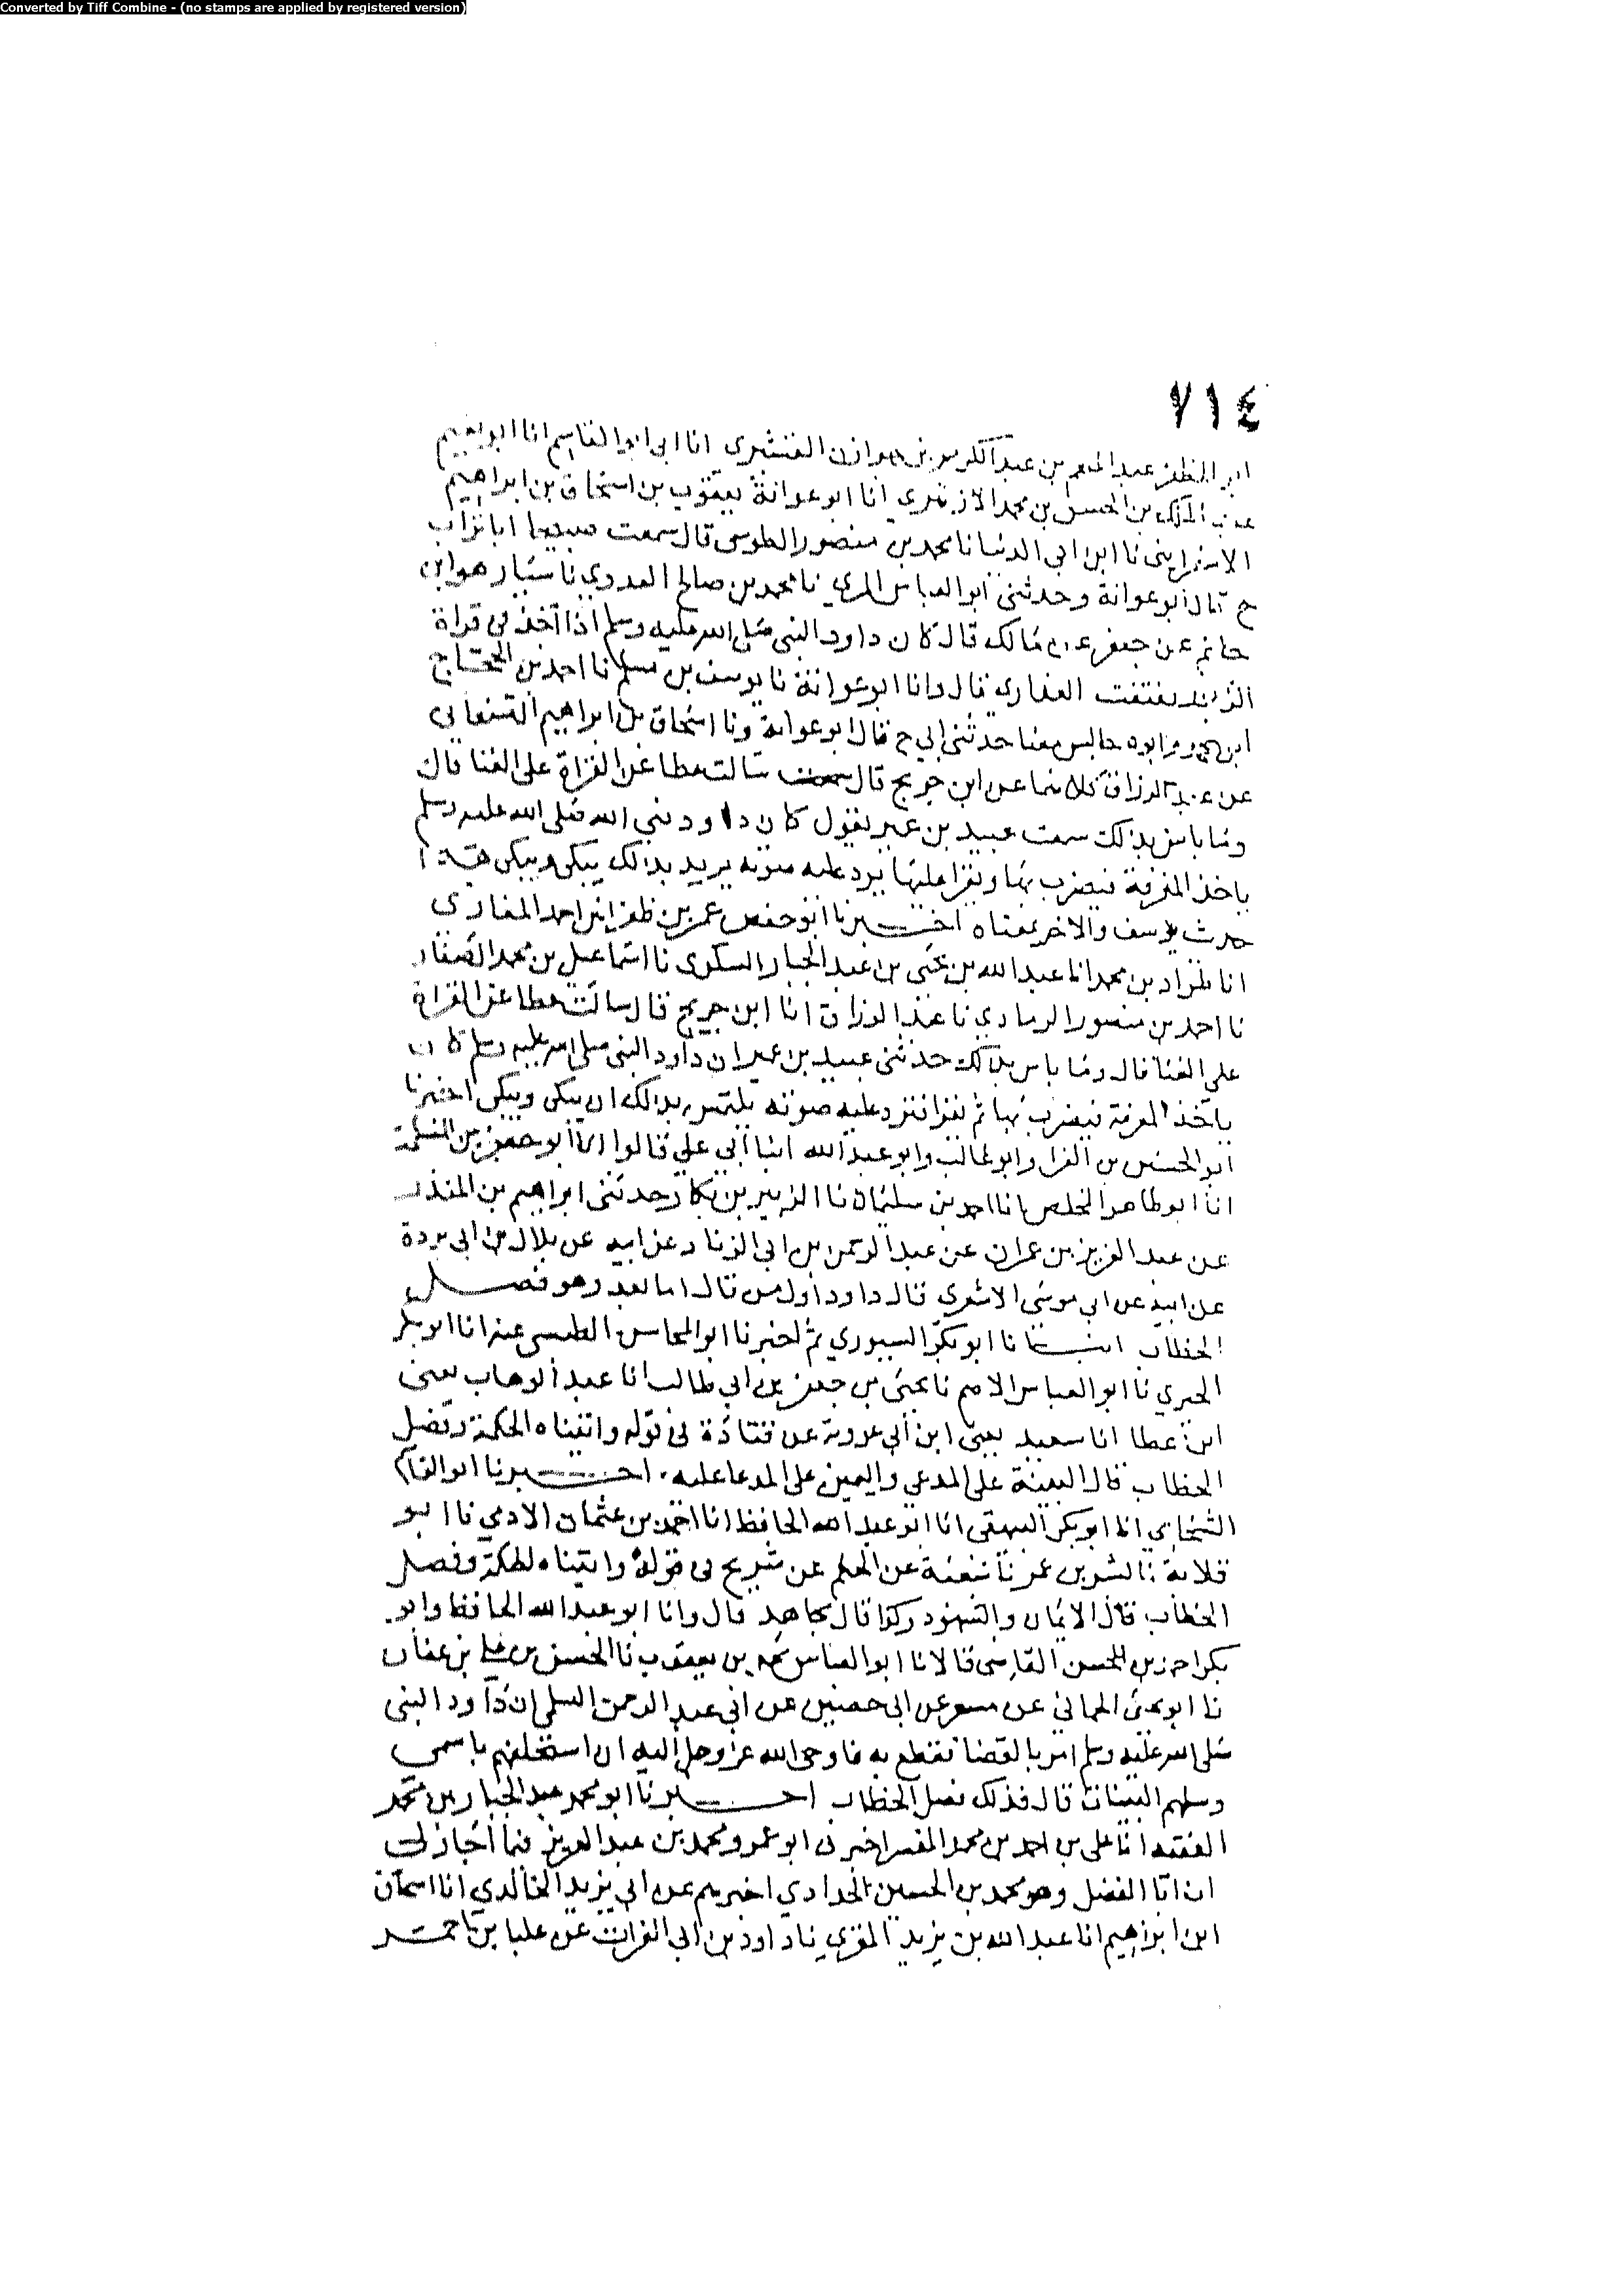 Converted by Tiff Combine - (no stamps are applied by registered version)
٧١٤
ابو المظفر عبد المنعم بن عبد الكريم بن هوازن القشيرى انا ابى ابو القاسم انا ابو نعيم
عبد الملك بن الحسن بن محمد الازهري انا ابو عوانة يعقوب بن اسحاق بن ابراهيم
الاسفراينى نا ابن ابي الدنيا نا محمد بن منصور الطوسى قال سمعت صبيحا ابا تراب
ح قال ابو عوانة وحدثنى ابو العباس المري نا محمد بن صالح العدوي نا سيار هو ابن
حاتم عن جعفر عن مالك قال كان داود النبي صلى الله عليه وسلم اذا اخذ في قراة
الزبور تفتقت العذارى قال وانا ابو عوانة نا يوسف بن مسلم نا احمد بن الحجاج
ابن محمد وابوه جالس معنا حدثنى ابي ح قال ابو عوانة ونا اسحاق بن ابراهيم الصنعاني
عن عبد الرزاق كلاهما عن ابن جريج قال سالت عطا عن القراة على الغنا قال
وما باس بذلك سمعت عبيد بن عمير يقول كان داود نبي الله صلى الله عليه وسلم
ياخذ المعزفة فيضرب بها ويقرا عليها يرد عليه صوته يريد بذلك يبكى ويبكى هذا
حديث يوسف والاخر بمعناه اخبرنا ابو حفص عمر بن ظفر بن احمد المغازى
انا طراد بن محمد انا عبد الله بن يحيى بن عبد الجبار السكرى نا اسماعيل بن محمد الصفار
نا احمد بن منصور الرمادي نا عبد الرزاق انا ابن جريج قال سالت عطا عن القراة
على الغنا قال وما باس بذلك حدثنى عبيد بن عمير ان داود النبي صلى الله عليه وسلم كان
ياخذ المعزفة فيضرب بها ثم يقرا تزد عليه صوته يلتمس بذلك ان يبكى ويبكى اخبرنا
ابو الحسين بن الفرا وابو غالب وابو عبد الله ابنا ابي علي قالوا انا ابو جعفر بن المسلمة
انا ابو طاهر المخلص انا احمد بن سليمان نا الزبير بن بكار حدثنى ابراهيم بن المنذر
عن عبد العزيز بن عمران عن عبد الرحمن بن ابي الزناد عن ابيه عن بلال بن ابي بردة
عن ابيه عن ابي موسى الاشعري قال داود اول من قال اما بعد وهو فصل
الخطاب انبانا ابو بكر السيوري ثم اخبرنا ابو المحاسن الطبسى عنه انا ابو بكر
الحيري نا ابو العباس الاصم نا يحيى بن جعفر بن ابي طالب انا عبد الوهاب يعنى
ابن عطا انا سعيد يعنى ابن ابي عروبة عن قتادة فى قوله واتيناه الحكمة وفصل
الخطاب قال البينة على المدعي واليمين على المدعا عليه . اخبرنا ابو القاسم
الشحامي انا ابو بكر البيهقي انا ابو عبد الله الحافظ انا احمد بن عثمان الادمي نا ابو
قلابة نا بشر بن عمر نا شعبة عن الحكم عن شريح فى قوله واتيناه الحكمة وفصل
الخطاب قال الايمان والشهود وكذا قال مجاهد قال وانا ابو عبد الله الحافظ وابو
بكر احمد بن الحسن القاضى قالا نا ابو العباس محمد بن يعقوب نا الحسن بن علي بن عفان
نا ابو يحيى الحماني عن مسعر عن ابى حصين عن ابى عبد الرحمن السلمي ان داود النبى
صلى الله عليه وسلم امر بالقضا فقطع به فاوحى الله عز وجل اليه ان استحلفهم باسمى
وسلهم البينات قال فذلك فصل الخطاب اخبرنا ابو محمد عبد الجبار بن محمد
الفقيه انا على بن احمد بن محمد المفسر اخبرنى ابو عمرو محمد بن عبد العزيز فيما اجاز لى
ان ابا الفضل وهو محمد بن الحسين الحدادي اخبرهم عن ابي يزيد الخالدي انا اسحاق
ابن ابراهيم انا عبد الله بن يزيد المقري نا داود بن ابي الفرات عن علبا بن احمد